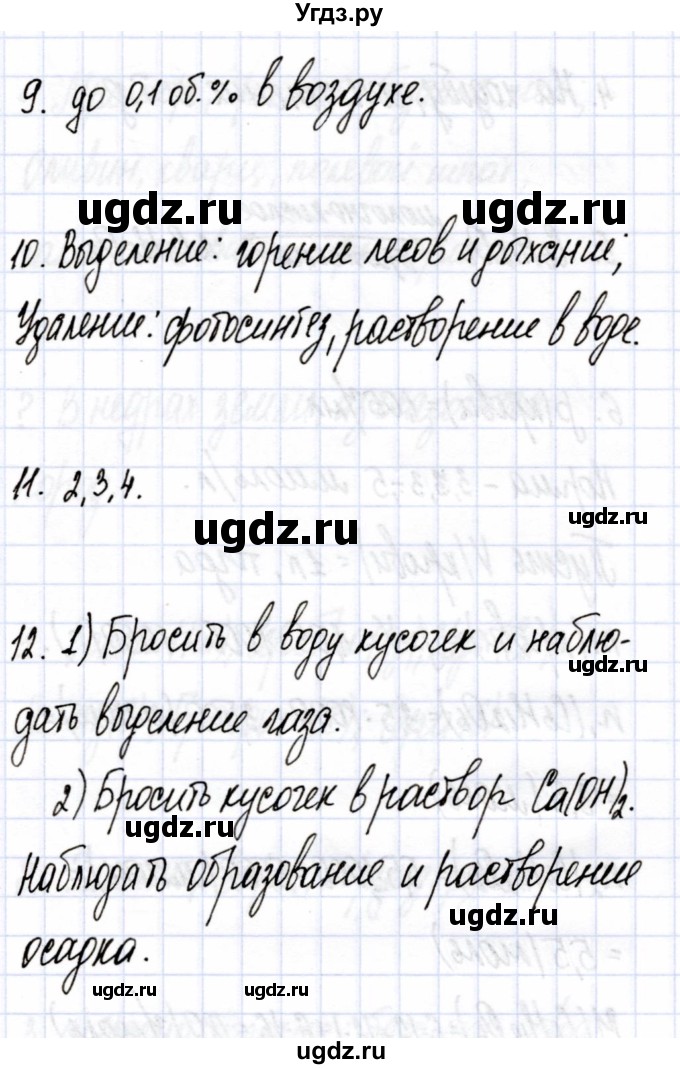 Угдз.ру
9. до 0,1 об.% в воздухе.
ugdz.ru ugdz.ru
10. Выделение: горение лесов и дыхание;
Удаление: фотосинтез, растворение в воде.
11. 2,3,4.
ugdz.ru
ugdz.ru
12. 1) Бросить в воду кусочек и наблю-
ugdz.ru
дать выделение газа.
2) Бросить кусочек в раствор Ca(OH)₂.
ugdz.ru
Наблюдать образование и растворение
ugdz.ru
осадка.
ugdz.ru ugdz.ru
ugdz.ru